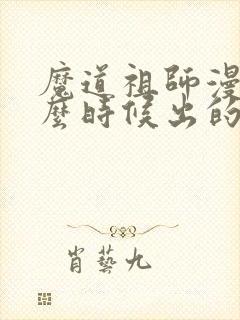 魔道祖師漫
麼時候出的
肖藝九